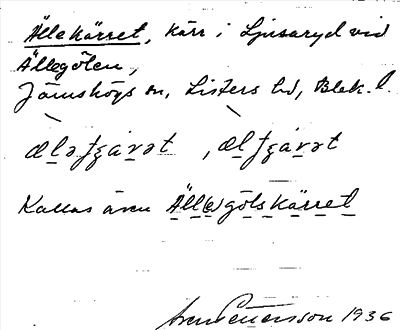 Ällekärret, kärr i Ljusaryd vid
Ällegölen,
Jämshögs sn, Listers hd, Blek. l.
æ̀ləʃʒárət, æ̀lʃʒárət
Kallas även Äll(e)gölskärret
Sven Petersson 1936